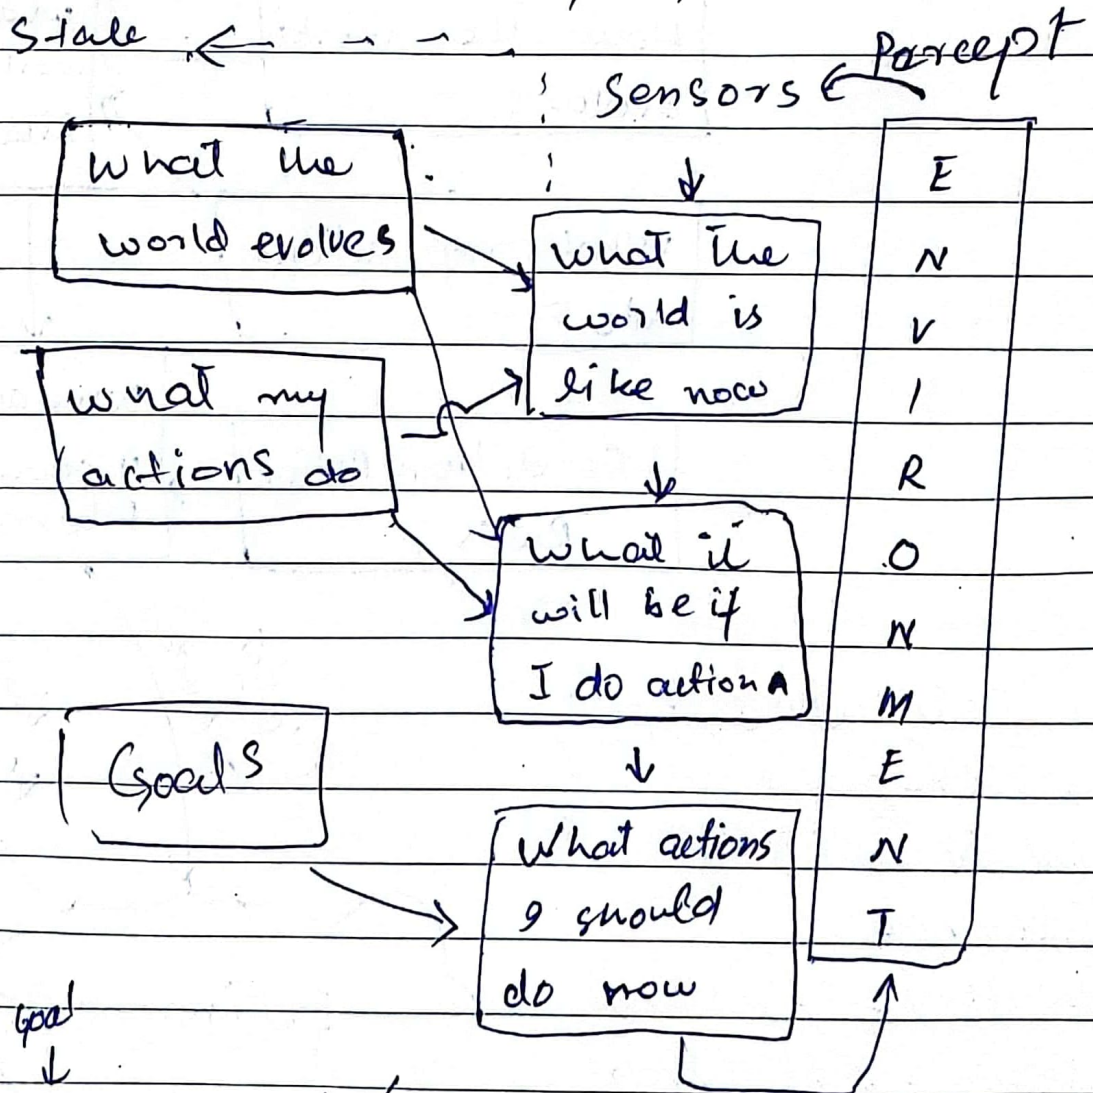 State
Parcept
Sensors
What the
world evolves
What the
world is
like now
What my
actions do
What it
will be if
I do action A
Goals
What actions
I should
do now
E
N
V
I
R
O
N
M
E
N
T
Goal